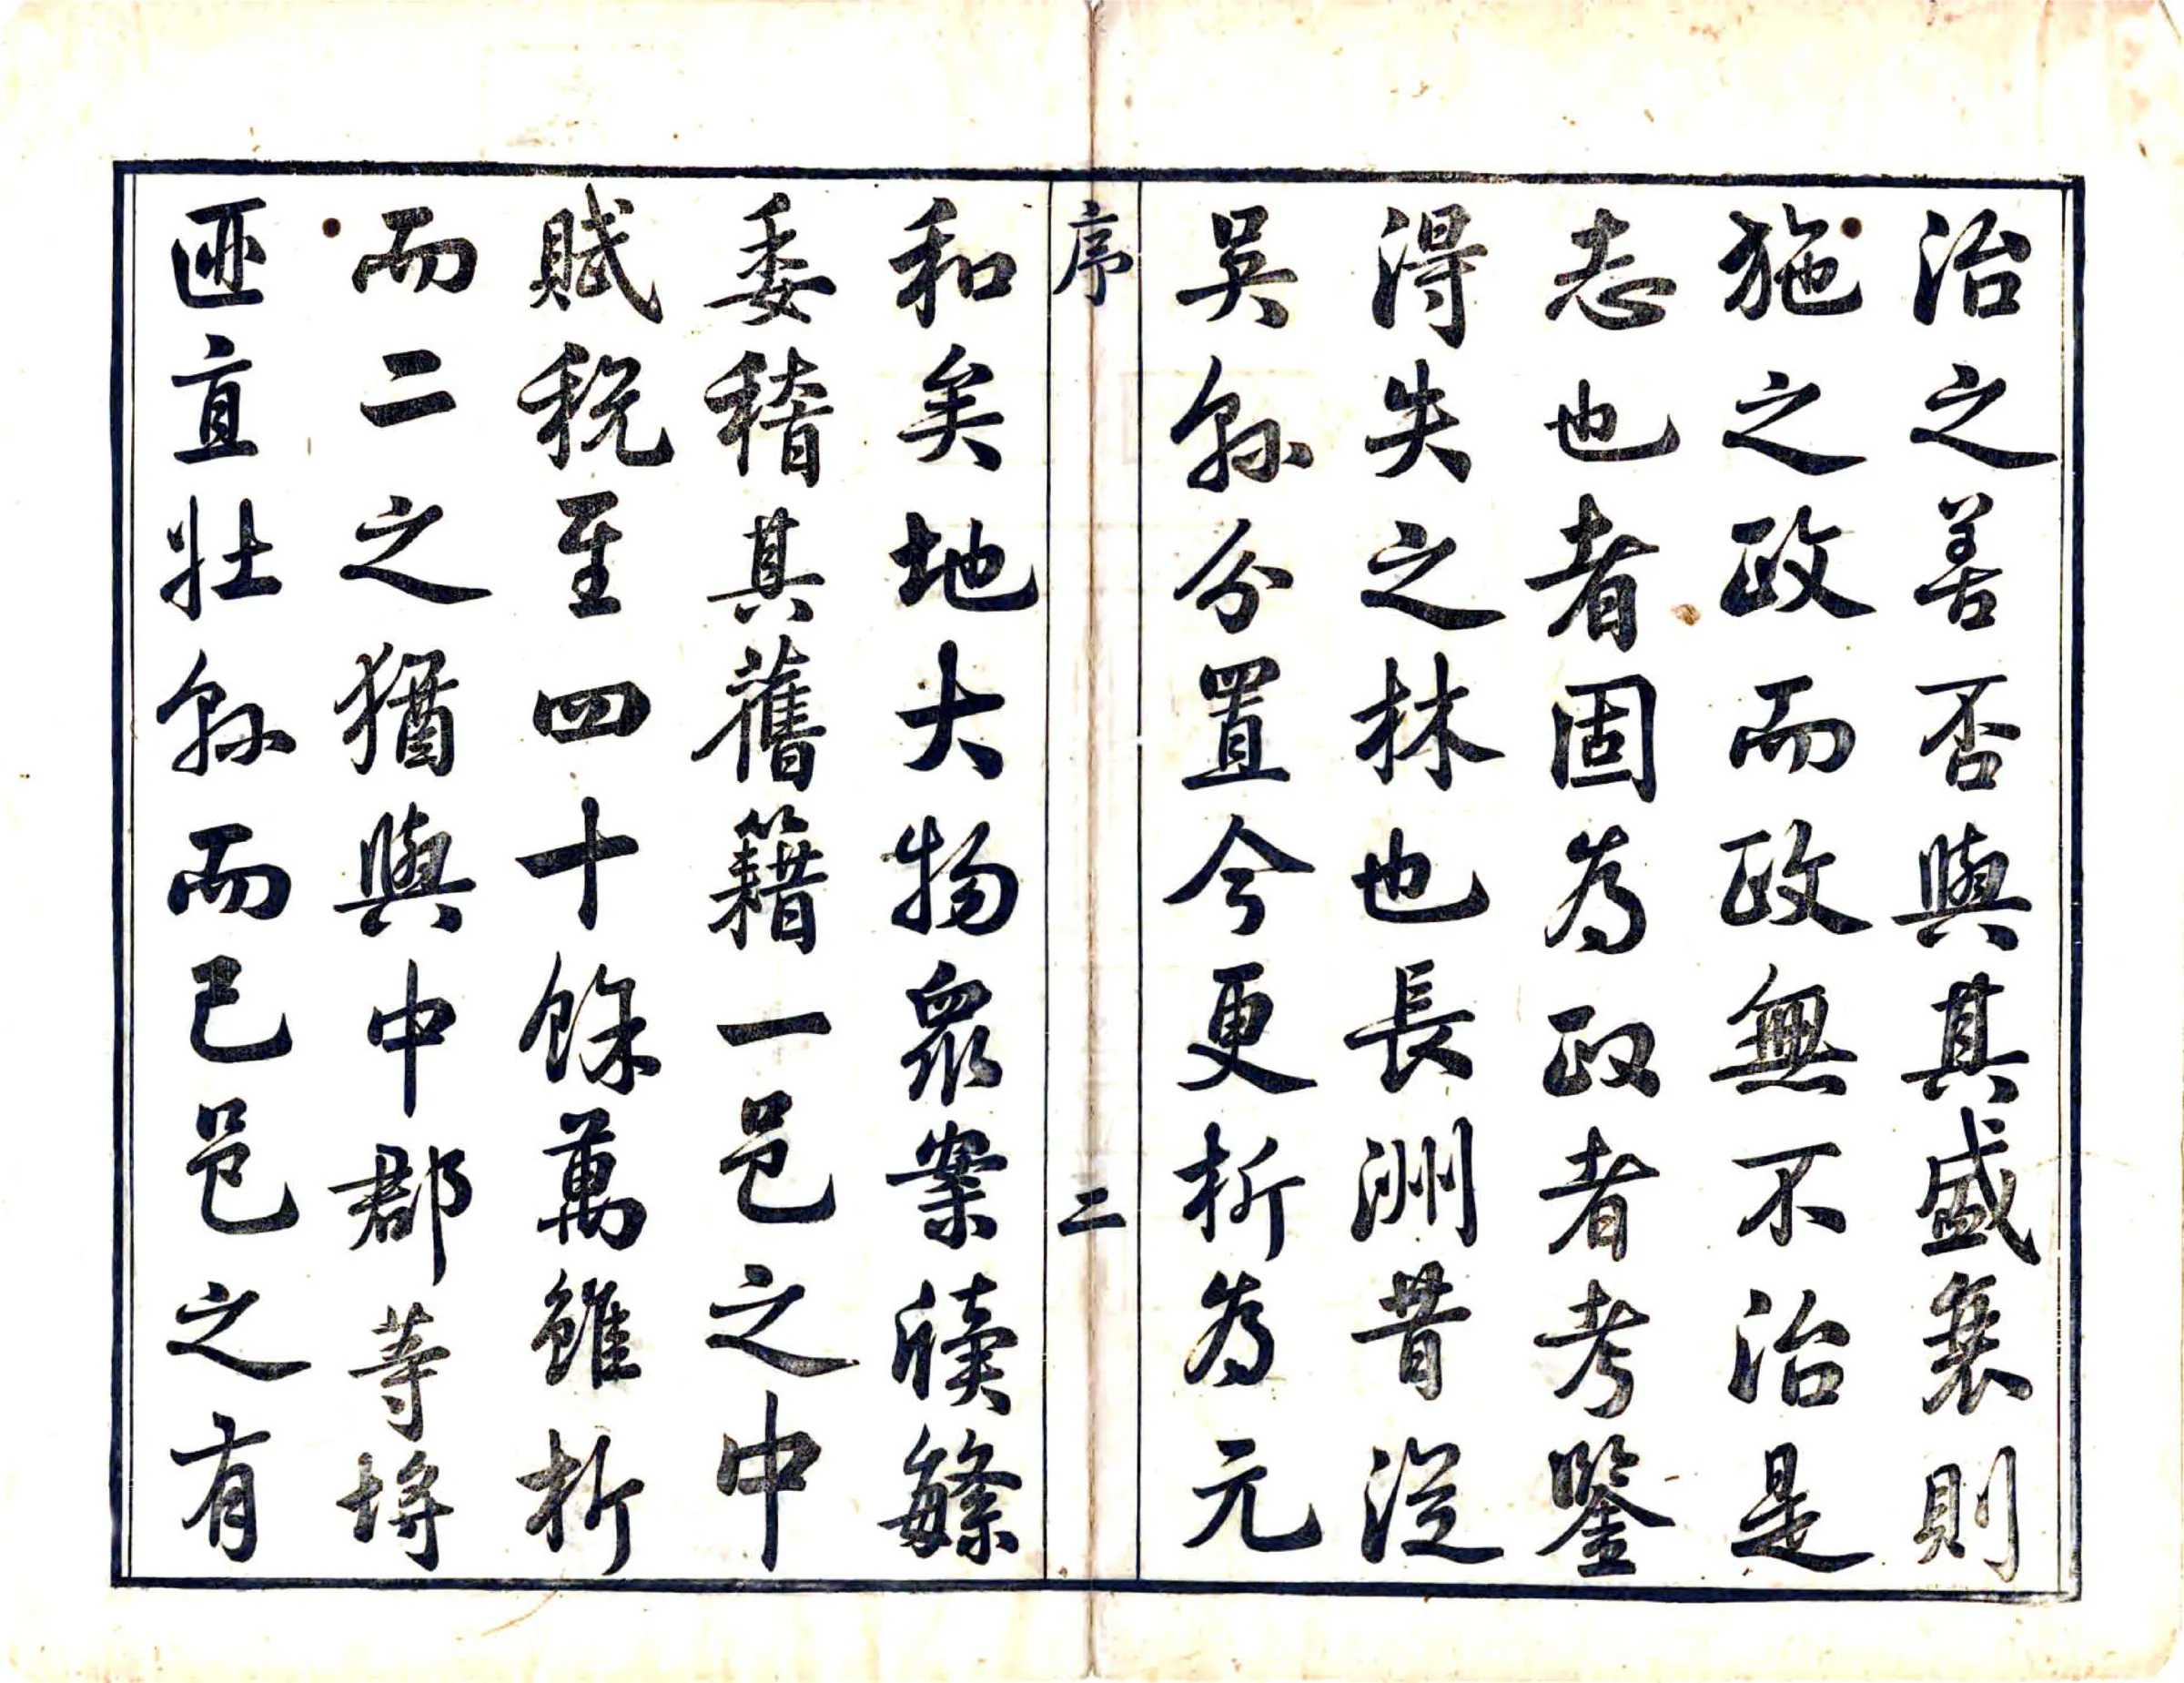 治之善否與其盛衰則
施之政而政無不治是
志也者固為政者考鑒
得失之林也長洲昔從
吳縣分置今更析為元
序 二
和矣地大物眾案牘繁
委稽其舊籍一邑之中
賦稅至四十餘萬雖析
而二之猶與中郡等埒
匪直壯縣而已邑之有